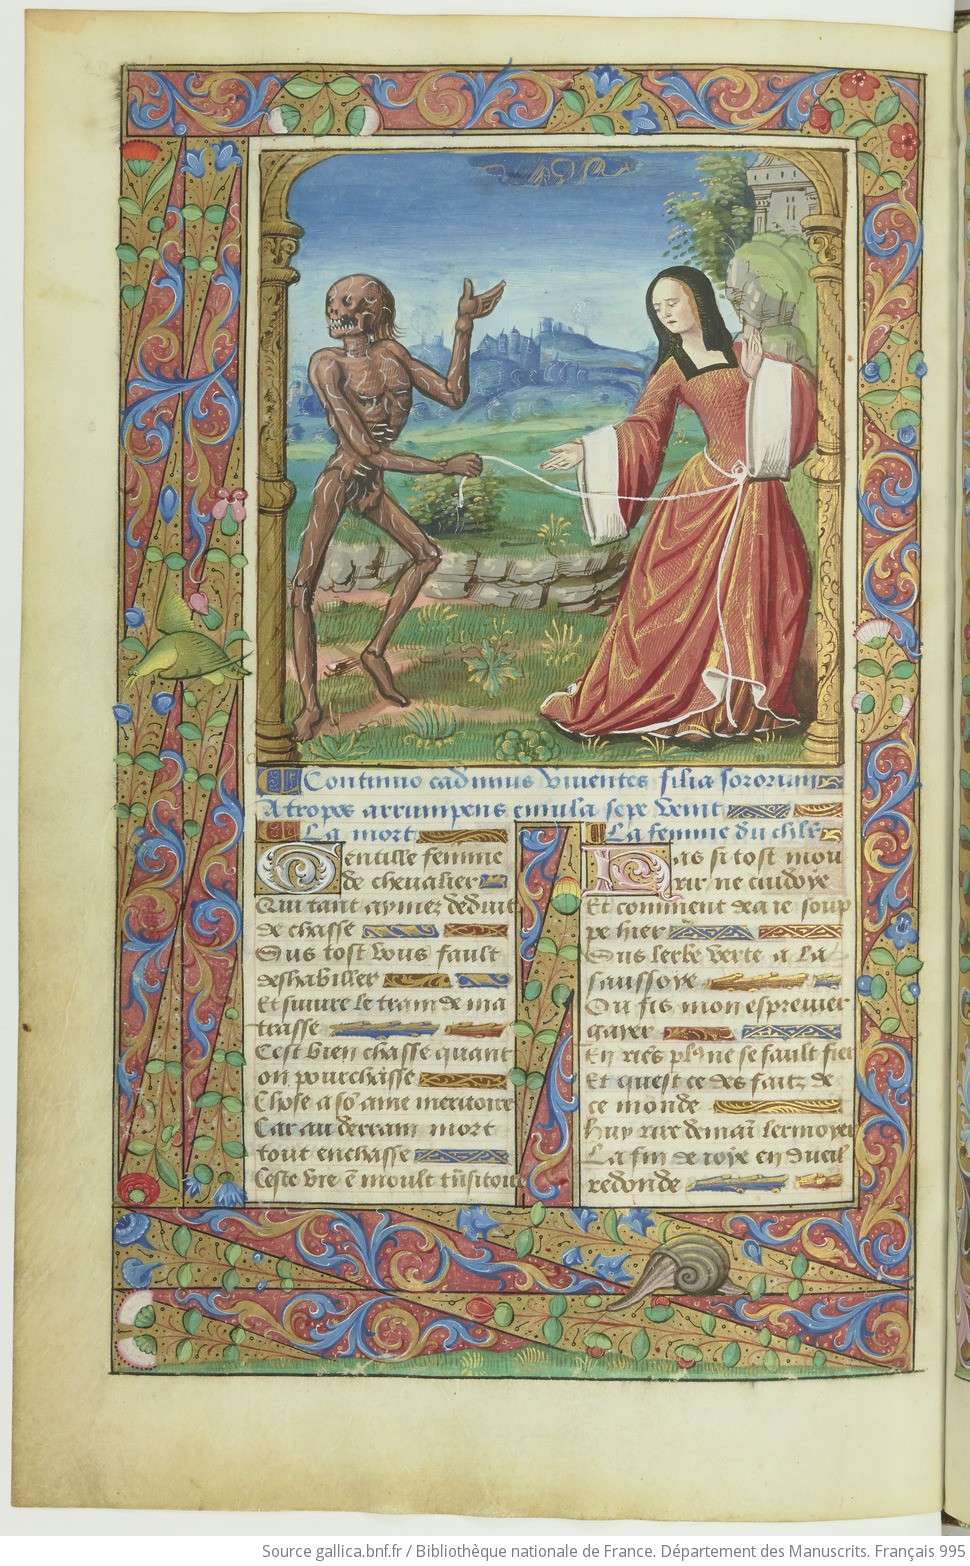 Continuo cadimus viventes filia sororum
Atropos arrumpens emula sepe venit
La mort
Gentille femme
de chevalier
Qui tant aymez deduit
de chasse
Sus tost vous fault
deshabiller
Et suivre le train de ma
trasse
Cest bien chasse quant
on pourchasse
Chose a sõ ame meritoire
Car au derrain mort
tout enchasse
Ceste vie ẽ moult trãsitoire
La femme du chlr
Las si tost mou
rir ne cuidoye
Et comment dea ie soup
pe hier
Sus lerbe verte a la
saussoye
Ou fis mon esprevier
gayer
En riẽs plꝰ ne se fault fier
Et quest ce des faitz de
ce monde
Huy rire demaĩ lermoyer
La fin de ioye en dueil
redonde
Source gallica.bnf.fr / Bibliothèque nationale de France. Département des Manuscrits. Français 995